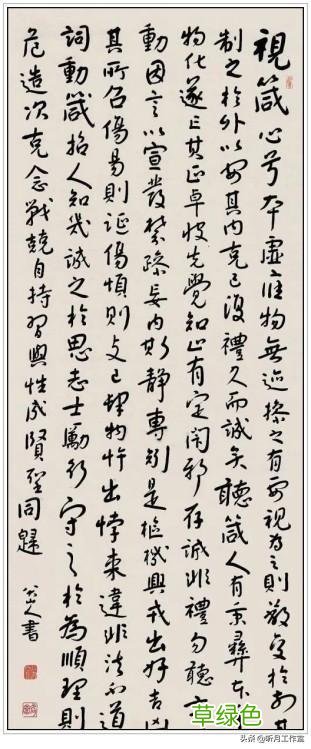 視箴心兮本虛應物無迹操之有要視為之則蔽交於前
制之於外以安其內克己復禮久而誠矣聽箴人有秉彝本
物化遂亡其正卓彼先覺知止有定閑邪存誠非禮勿聽言
動因言以宣發禁躁妄內斯靜專矧是樞機興戎出好吉凶
其所召傷易則誕傷煩則支己肆物忤出悖來違非法不道
詞動箴哲人知幾誠之於思志士勵行守之於為順理則
危造次克念戰兢自持習與性成賢聖同歸 八大山人書
草绿色
头条 @听月工作室